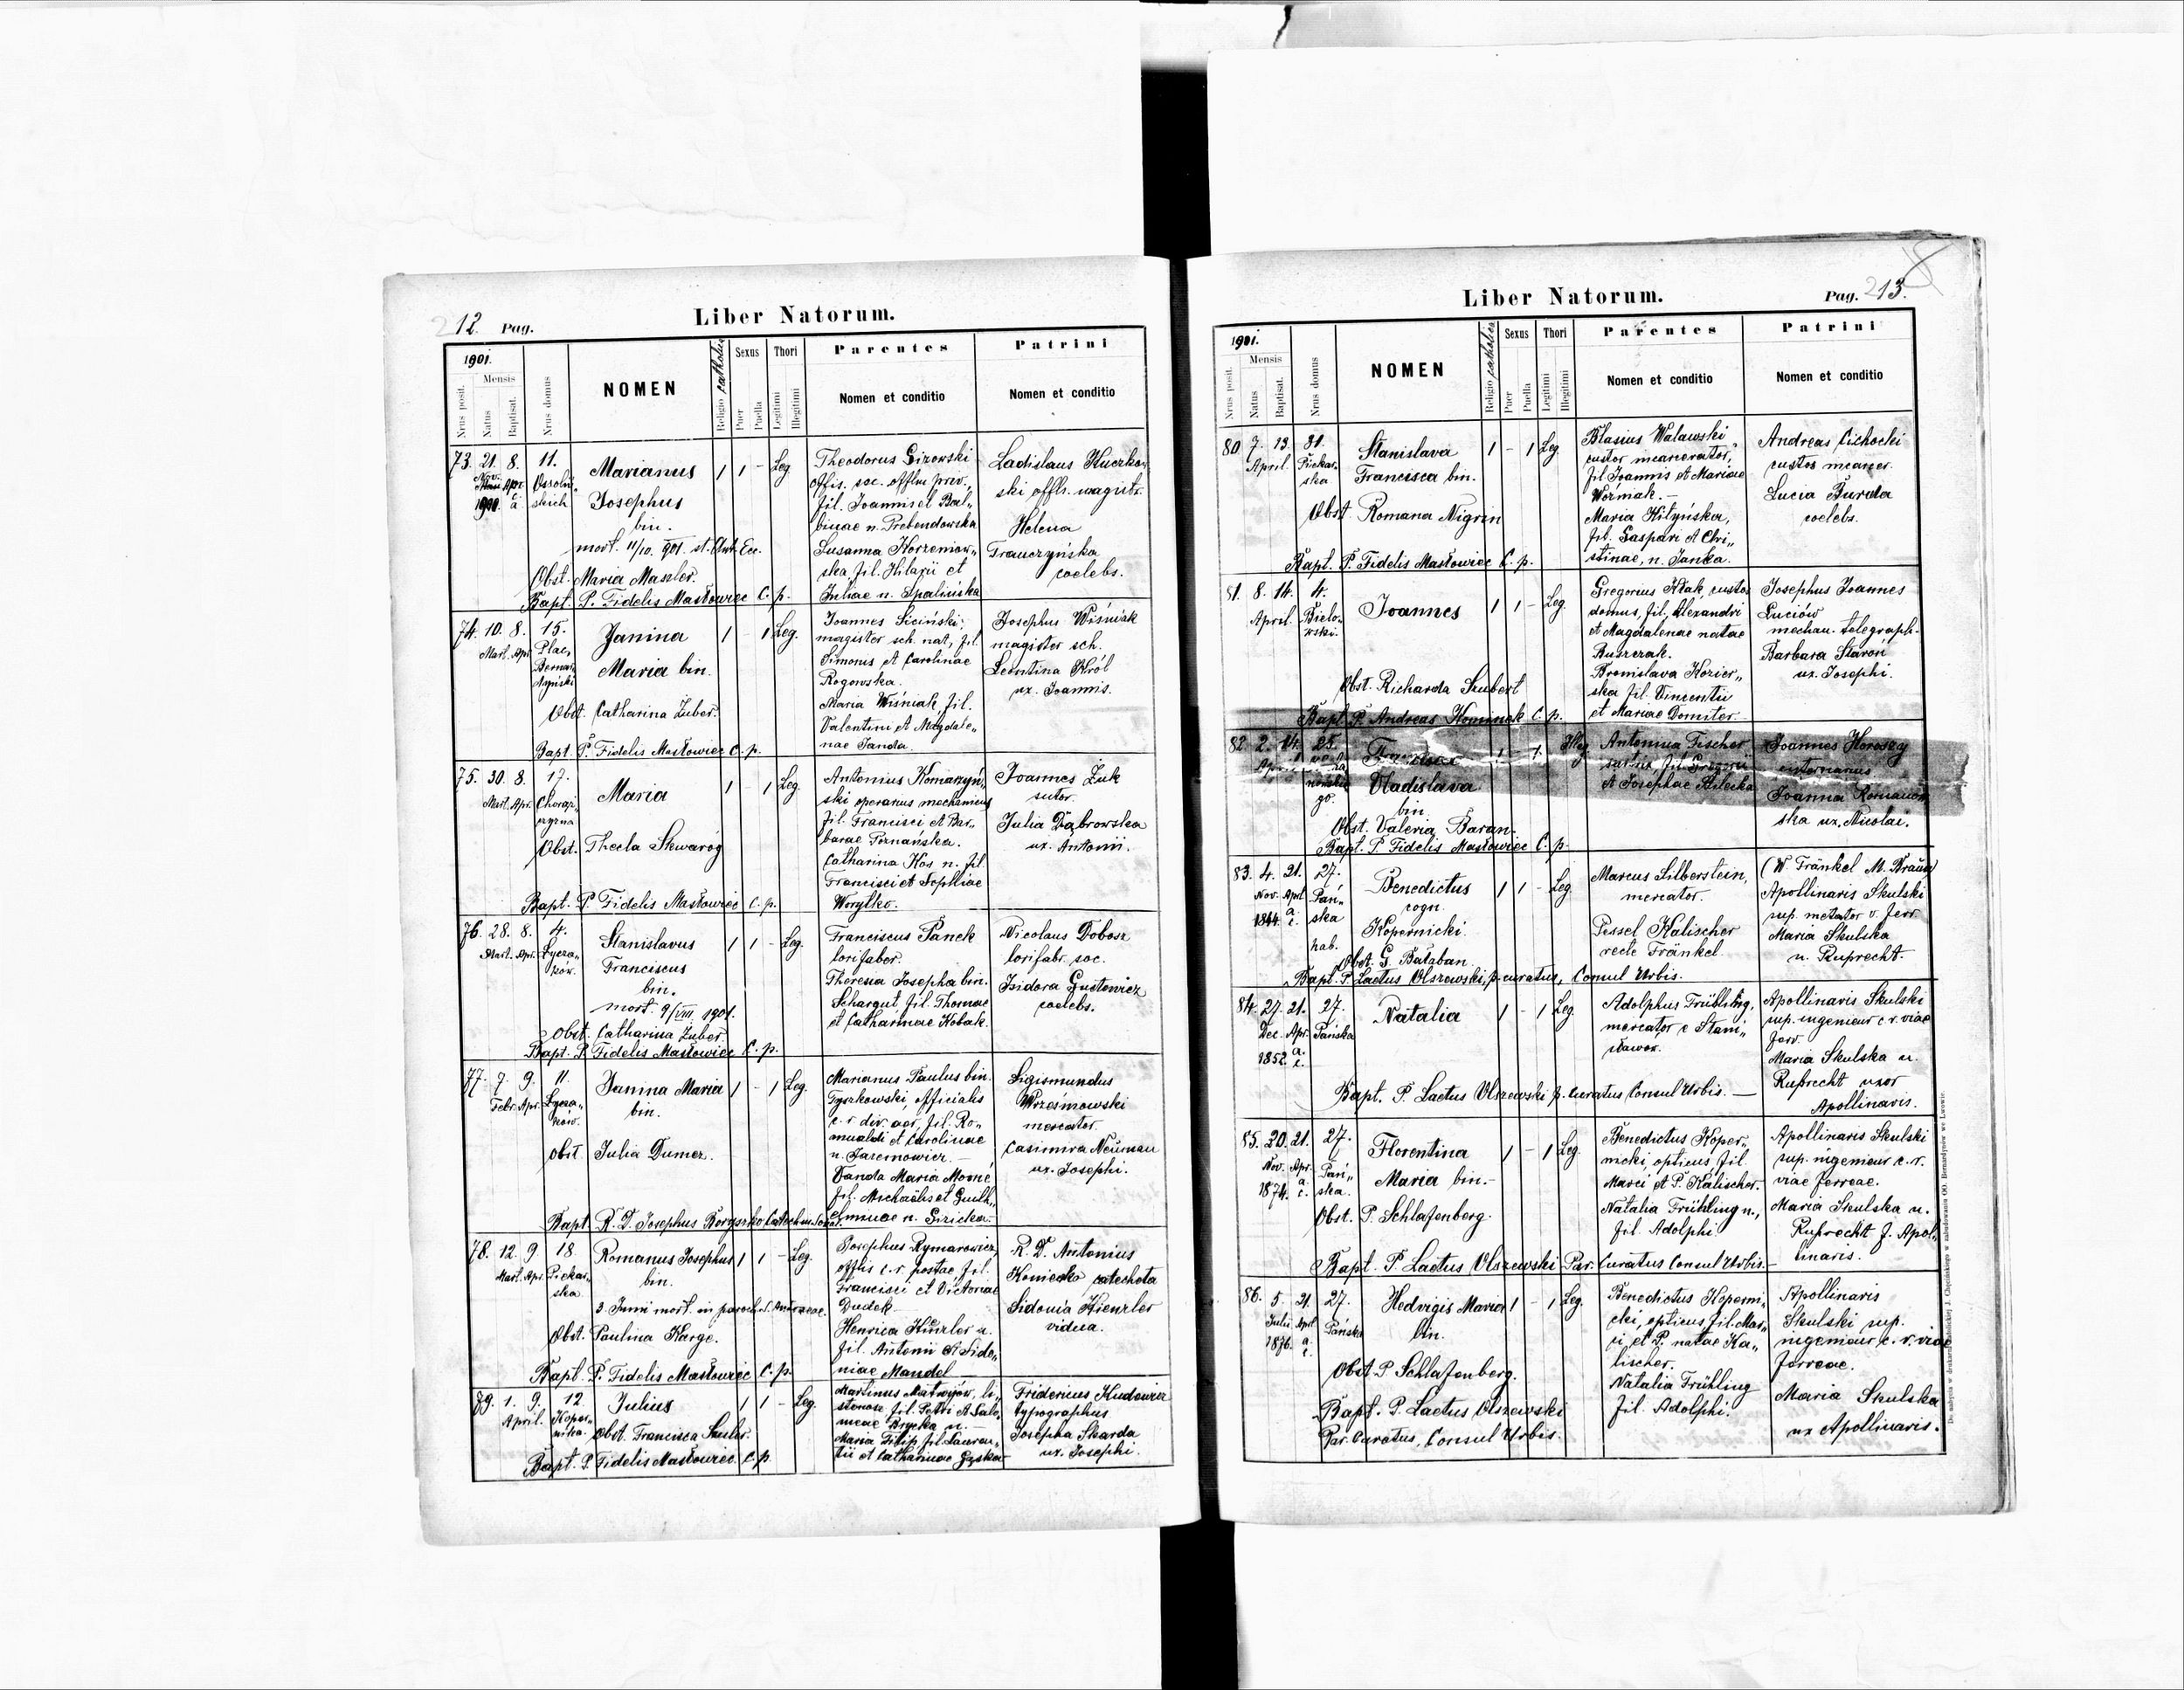 212. Pag.
Liber Natorum.
1901.
Nrus posit.
Mensis
Natus
Baptisat.
Nrus domus
NOMEN
Religio catholica
Sexus
Puer
Puella
Thori
Legitimi
Illegitimi
Parentes
Nomen et conditio
Patrini
Nomen et conditio
73. 21. 8. 11.
Nov. Apr.
a.
Marianus
Josephus
bin.
mort. 11/10. 901. st. Ant. Ecc.
Obst. Maria Maszler.
Bapt. P. Fidelis Masłowiec C. p.
1 1 - Leg
Theodorus
offis. soc. offlus priv.,
fil. Joannis et Bal„
binae n. Prebendowska
Susanna Korzeniow„
ska fil. Hilarii et
Juliae n. Spalińska
Ladislaus Kuczkow
ski offls. magistr.
Helena
coelebs.
74. 10. 8. 15.
Mart. Apr. Plac
Bernar
dyński
Janina
Maria bin.
Obst. Catharina Zuber.
Bapt. P. Fidelis Masłowiec C. p.
1 - 1 Leg.
Joannes Siciński,
magister sch. nat, fil.
Simonis et Carolinae
Rogowska.
Maria Wiśniak, fil.
Valentini et Magdale„
nae Janda.
Josephus Wiśniak
magister sch.
Leontina Król
ux. Joannis.
75. 30. 8. 17.
Mart. Apr. Chorąż
czyzna
Maria
Obst. Thecla Skwaróg
Bapt. P. Fidelis Masłowiec C. p.
1 - 1 Leg.
Antonius Komarzyń„
ski operarius mechanicus
fil. Francisci et Bar„
barae Poznańska.
Catharina Kos n. fil.
Francisci et Sophiae
Worytko.
Joannes Żuk
sutor.
Julia Dąbrowska
ux. Antonii.
76. 28. 8. 4.
Mart. Apr. Łycza„
ków.
Stanislavus
Franciscus
bin.
mort. 9/VIII. 1901.
Obst. Catharina Zuber.
Bapt. P. Fidelis Masłowiec C. p.
1 1 - Leg.
Franciscus Panek
lorifaber.
Theresia Josepha bin.
Schargut, fil. Thomae
et Catharinae Kobak.
Nicolaus Dobosz
lorifabr. soc.
Isidora Gustowicz
coelebs.
77. 7. 9. 11.
Febr. Apr. Łycza„
ków.
Janina Maria
bin.
obst. Julia Dumez.
Bapt. R. D. Josephus
1 - 1 Leg.
Marianus Paulus bin.
Tyszkowski, officialis
c. r. div. aer, fil. Ro„
mualdi et Carolinae
n. Jaremowicz. —
Vanda Maria
fil. Michaëlis et Guilh„
elminae n.
Sigismundus
Wrześniowski
mercator.
Casimira Neüman
ux. Josephi.
78. 12. 9. 18.
Mart. Apr. Piekar„
ska
Romanus Josephus
bin.
3. Junii mort. in paroch. S. Andreae.
Obst. Paulina Karge.
Bapt. P. Fidelis Masłowiec C. p.
1 1 - Leg.
Josephus Rymarowicz,
offlis c. r. postae fil.
Francisci et Victoriae
Dudek.
Henrica Kienzler n.
fil. Antonii et Sido„
niae Mandel
R. D. Antonius
Koniecko catecheta
Sidonia Kienzler
vidua.
79. 1. 9. 12.
April. Koper„
nika.
Julius
Obst. Francisca
Bapt. P. Fidelis Masłowiec. C. p.
1 1 - Leg.
Martinus Matwyjów, li„
stonosz fil. Petri et Salo„
meae
Maria Filip fil. Lauren„
tii et Catharinae Gąska
Fridericus Kudewicz
typographus
Josepha Skarda
ux. Josephi.
Liber Natorum.
Pag. 213.
1901.
Nrus posit.
Mensis
Natus
Baptisat.
Nrus domus
NOMEN
Religio catholica
Sexus
Puer
Puella
Thori
Legitimi
Illegitimi
Parentes
Nomen et conditio
Patrini
Nomen et conditio
80. 7. 13. 31.
April. Piekar„
ska
Stanislava
Francisca bin.
Obst. Romana Nigrin
Bapt. P. Fidelis Masłowiec C. p.
1 - 1 Leg.
Blasius Walawski
custor incarcerator,
fil Joannis et Mariae
Woźniak. —
Maria Hiłyńska,
fil. Gaspari et Chri„
stinae, n. Janka.
Andreas Cichocki
custos incarcer.
Lucia Burda
coelebs.
81. 8. 14. 4.
April. Bielo„
wski.
Joannes
Obst. Richarda Szubert
Bapt. P. Andreas Kominek C. p.
1 1 - Leg.
Gregorius Ktak, custos
domus, fil. Alexandri
et Magdalenae natae
Buszczak.
Bronislava Kozier„
ska fil. Vincentii
et Mariae Domiter
Josephus Joannes
Luciów
mechan. telegraph.
Barbara Staroń
ux. Josephi.
82. 2. 14. 25.
April
go.
Francisca
Vladislava
bin
Obst. Valeria Baran.
Bapt. P. Fidelis Masłowiec C. p.
1 - 1. Illeg
Antonina Fischer
fil. Gregorii
et Josephae Bilecka
Joannes Horoszy
Joanna Romanow
ska ux. Nicolai.
83. 4. 21. 27.
Nov. April Pań„
1844. a. c. ska
hab.
Benedictus
cogn.
Kopernicki.
Obst. G. Bałaban.
Bapt. P. Laetus Olszewski, p. curatus, Consul Urbis.
1 1 - Leg
Marcus Silberstein,
mercator.
Pessel Kalischer
recte Fränkel.
(W. Fränkel M. Braün)
Apollinaris Skulski
sup. metator v. ferr.
Maria Skulska
n. Ruprecht.
84. 27. 21. 27.
Dec. Apr. Pańska
1852. a. c.
Natalia
Bapt. P. Laetus Olszewski p. curatus Consul Urbis. —
1 - 1 Leg.
Adolphus Frühling,
mercator e Stani„
sławow.
Apollinaris Skulski
sup. ingenieur c. r. viae
ferr.
Maria Skulska n.
Ruprecht uxor
Apollinaris.
85. 20. 21. 27.
Nov. Apr. Pań„
1874. a. c. ska.
Florentina
Maria bin.-
Obst. P. Schlafenberg.
Bapt. P. Laetus Olszewski Par. Curatus Consul Urbis.-
1 - 1 Leg.
Benedictus Koper„
nicki, opticus fil.
Marci et P. Kalischer.
Natalia Frühling n.,
fil. Adolphi
Apollinaris Skulski
sup. ingenieur c. r.
viae ferreae.
Maria Skulska n.
Ruprecht f. Apol„
linaris.
86. 5. 21. 27.
Julii April Pańska
1876. a. c.
Hedvigis Maria
bin.
Obst P Schlafenberg.
Bapt. P. Laetus Olszewski
Par. Curatus, Consul Urbis.
1 - 1 Leg.
Benedictus Koperni„
cki, opticus, fil. Mar„
ci et P. natae Ka„
lischer.
Natalia Frühling
fil. Adolphi.
Apollinaris
Skulski sup.
ingenieur c. r. viae
ferreae.
Maria Skulska
ux Apollinaris.